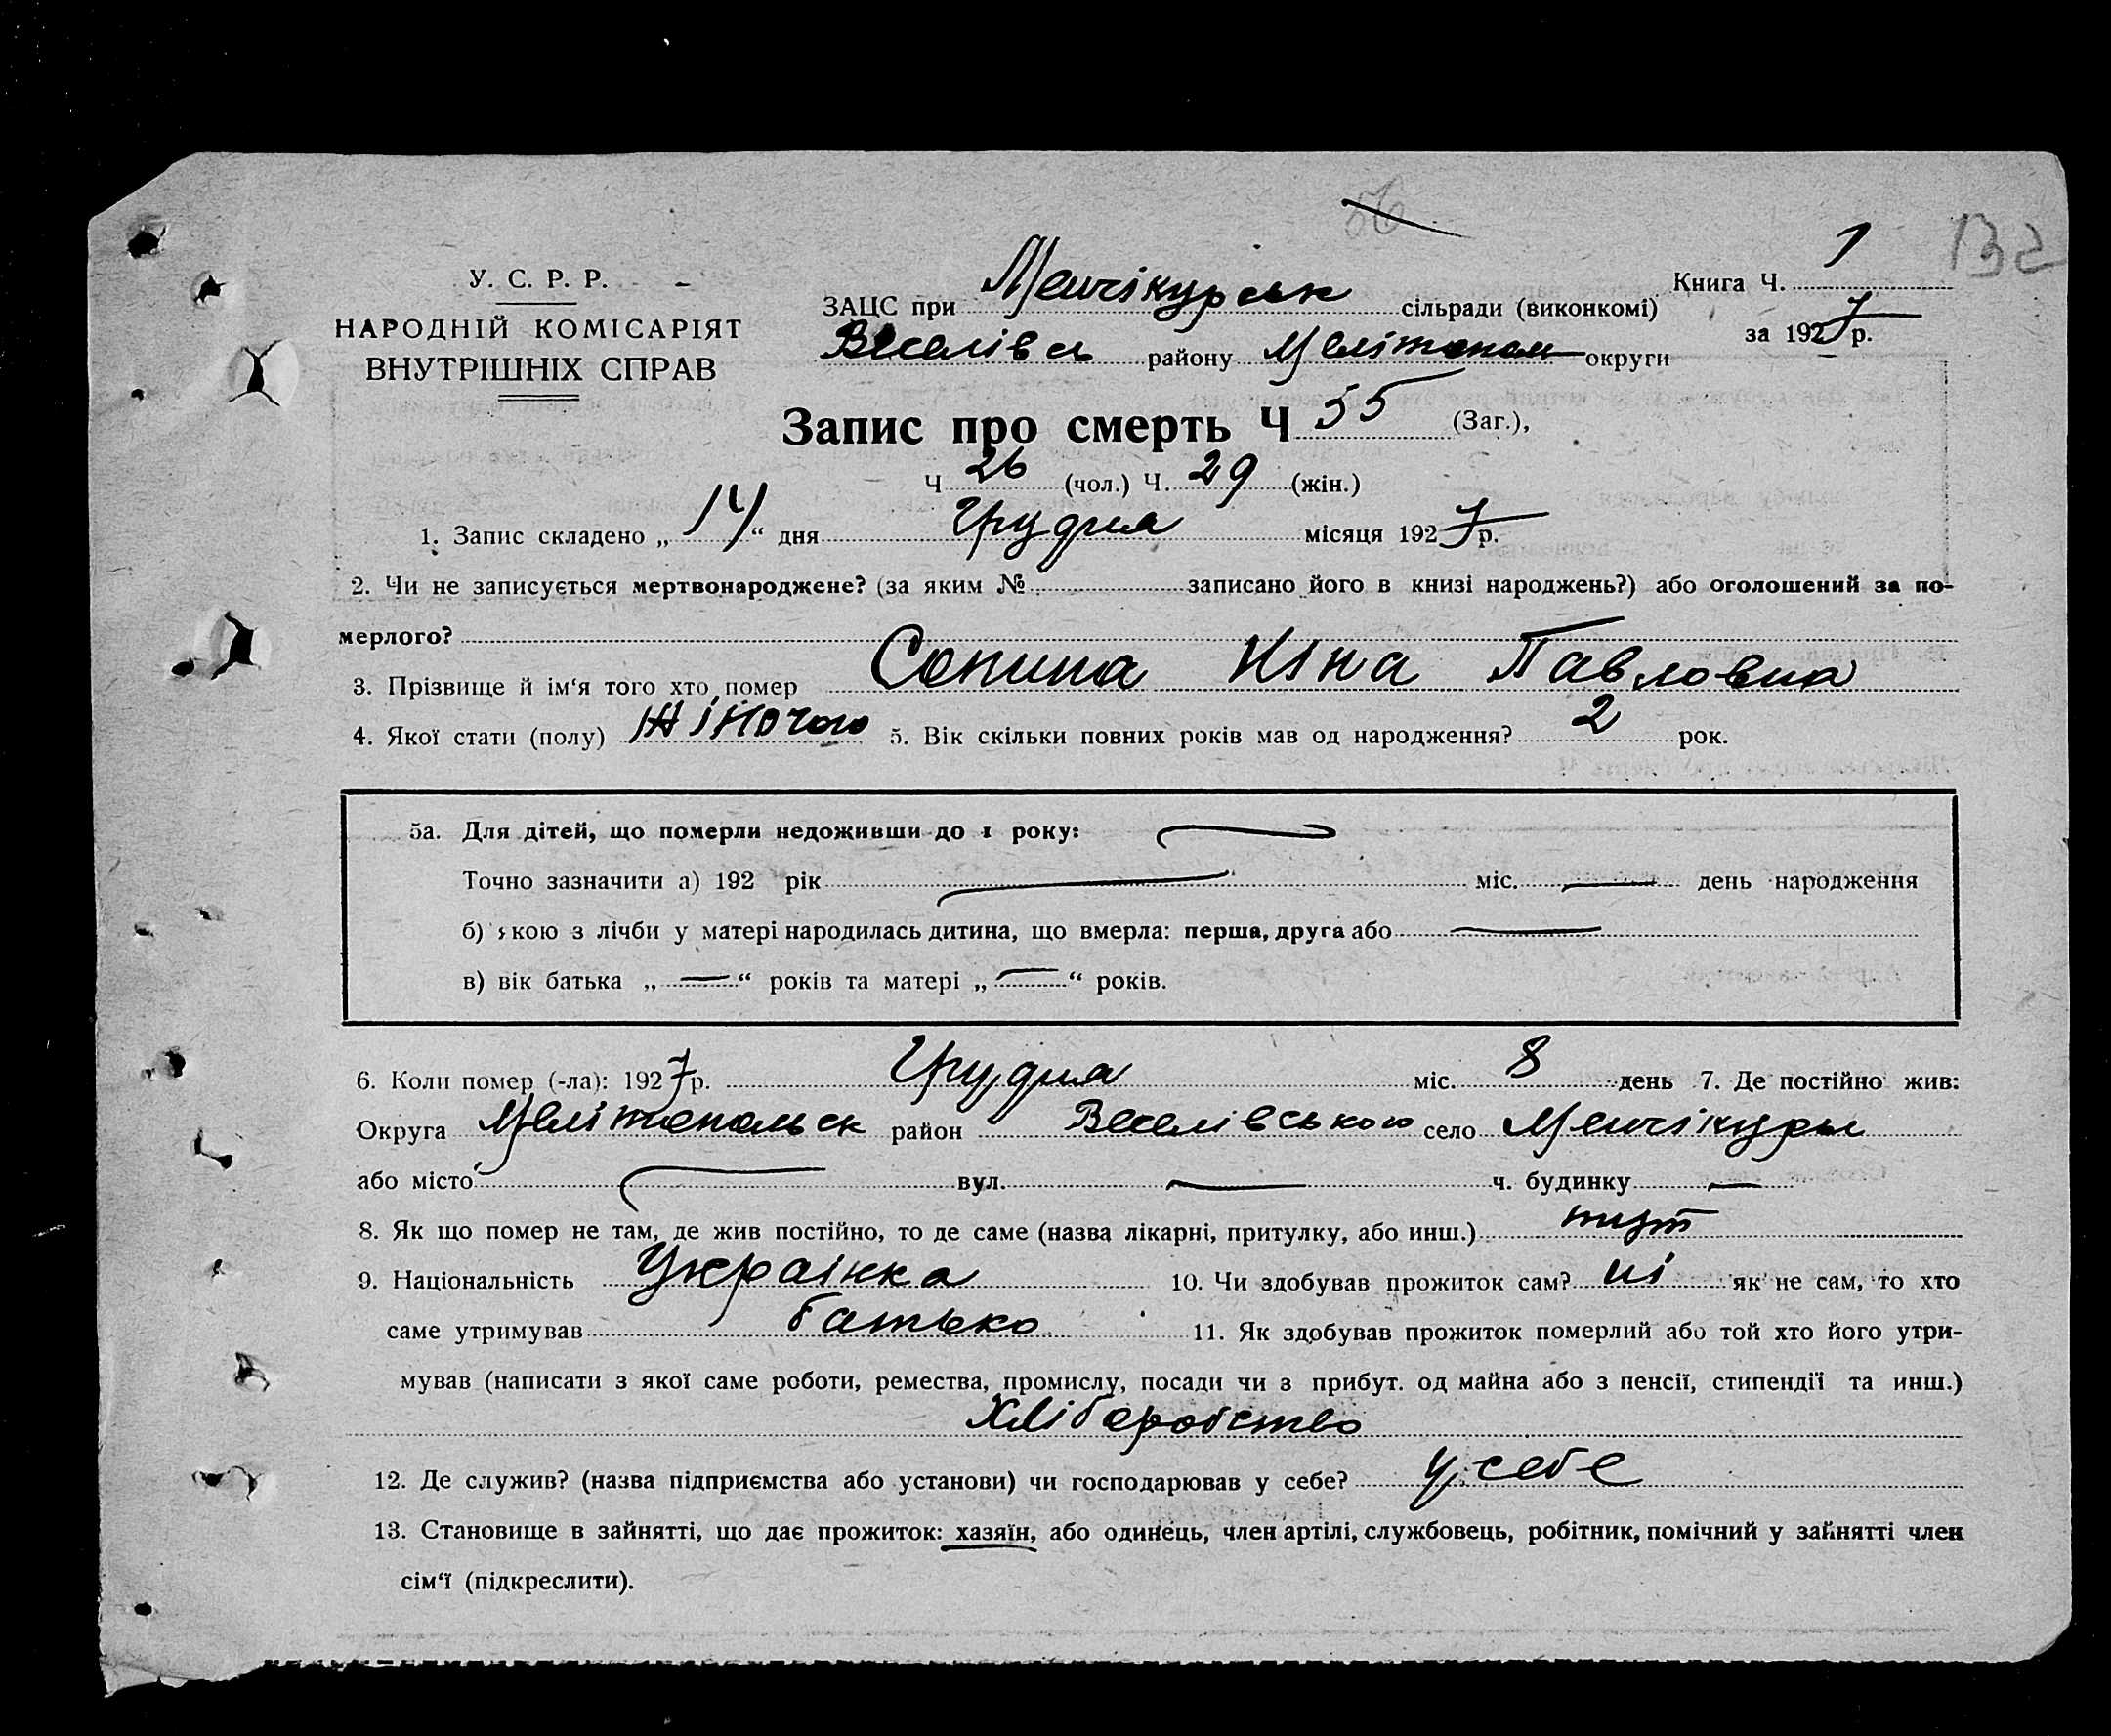 56
132
У. С. Р. Р.
НАРОДНІЙ КОМІСАРІЯТ
ВНУТРІШНІХ СПРАВ
ЗАЦС при Менчікурськ сільради (виконкомі)
Веселівсь району Мелітопол округи
Книга Ч. 1
за 1927 р.
Запис про смерть Ч 55 (Заг.),
Ч 26 (чол.) Ч. 29 (жін.)
1. Запис складено „14“ дня Грудня місяця 1927 р.
2. Чи не записується мертвонароджене? (за яким № записано його в книзі народжень?) або оголошений за по-
мерлого?
3. Прізвище й ім‘я того хто помер Сопина Ніна Павловна
4. Якої стати (полу) Жіночого 5. Вік скільки повних років мав од народження? 2 рок.
5а. Для дітей, що померли недоживши до 1 року:
Точно зазначити а) 192 рік міс. день народження
б) якою з лічби у матері народилась дитина, що вмерла: перша, друга або
в) вік батька „ — “ років та матері „ — “ років.
6. Коли помер (-ла): 1927 р. Грудня міс. 8 день 7. Де постійно жив:
Округа Мелітопольск район Веселівського село Менчікуры
або місто — вул. — ч. будинку —
8. Як що помер не там, де жив постійно, то де саме (назва лікарні, притулку, або инш.) тут
9. Національність Українка 10. Чи здобував прожиток сам? ні як не сам, то хто
саме утримував батько 11. Як здобував прожиток померлий або той хто його утри-
мував (написати з якої саме роботи, ремества, промислу, посади чи з прибут. од майна або з пенсії, стипендії та инш.)
Хліборобство
12. Де служив? (назва підприємства або установи) чи господарював у себе? у себе
13. Становище в зайнятті, що дає прожиток: хазяїн, або одинець, член артілі, службовець, робітник, помічний у зайнятті член
сім‘ї (підкреслити).